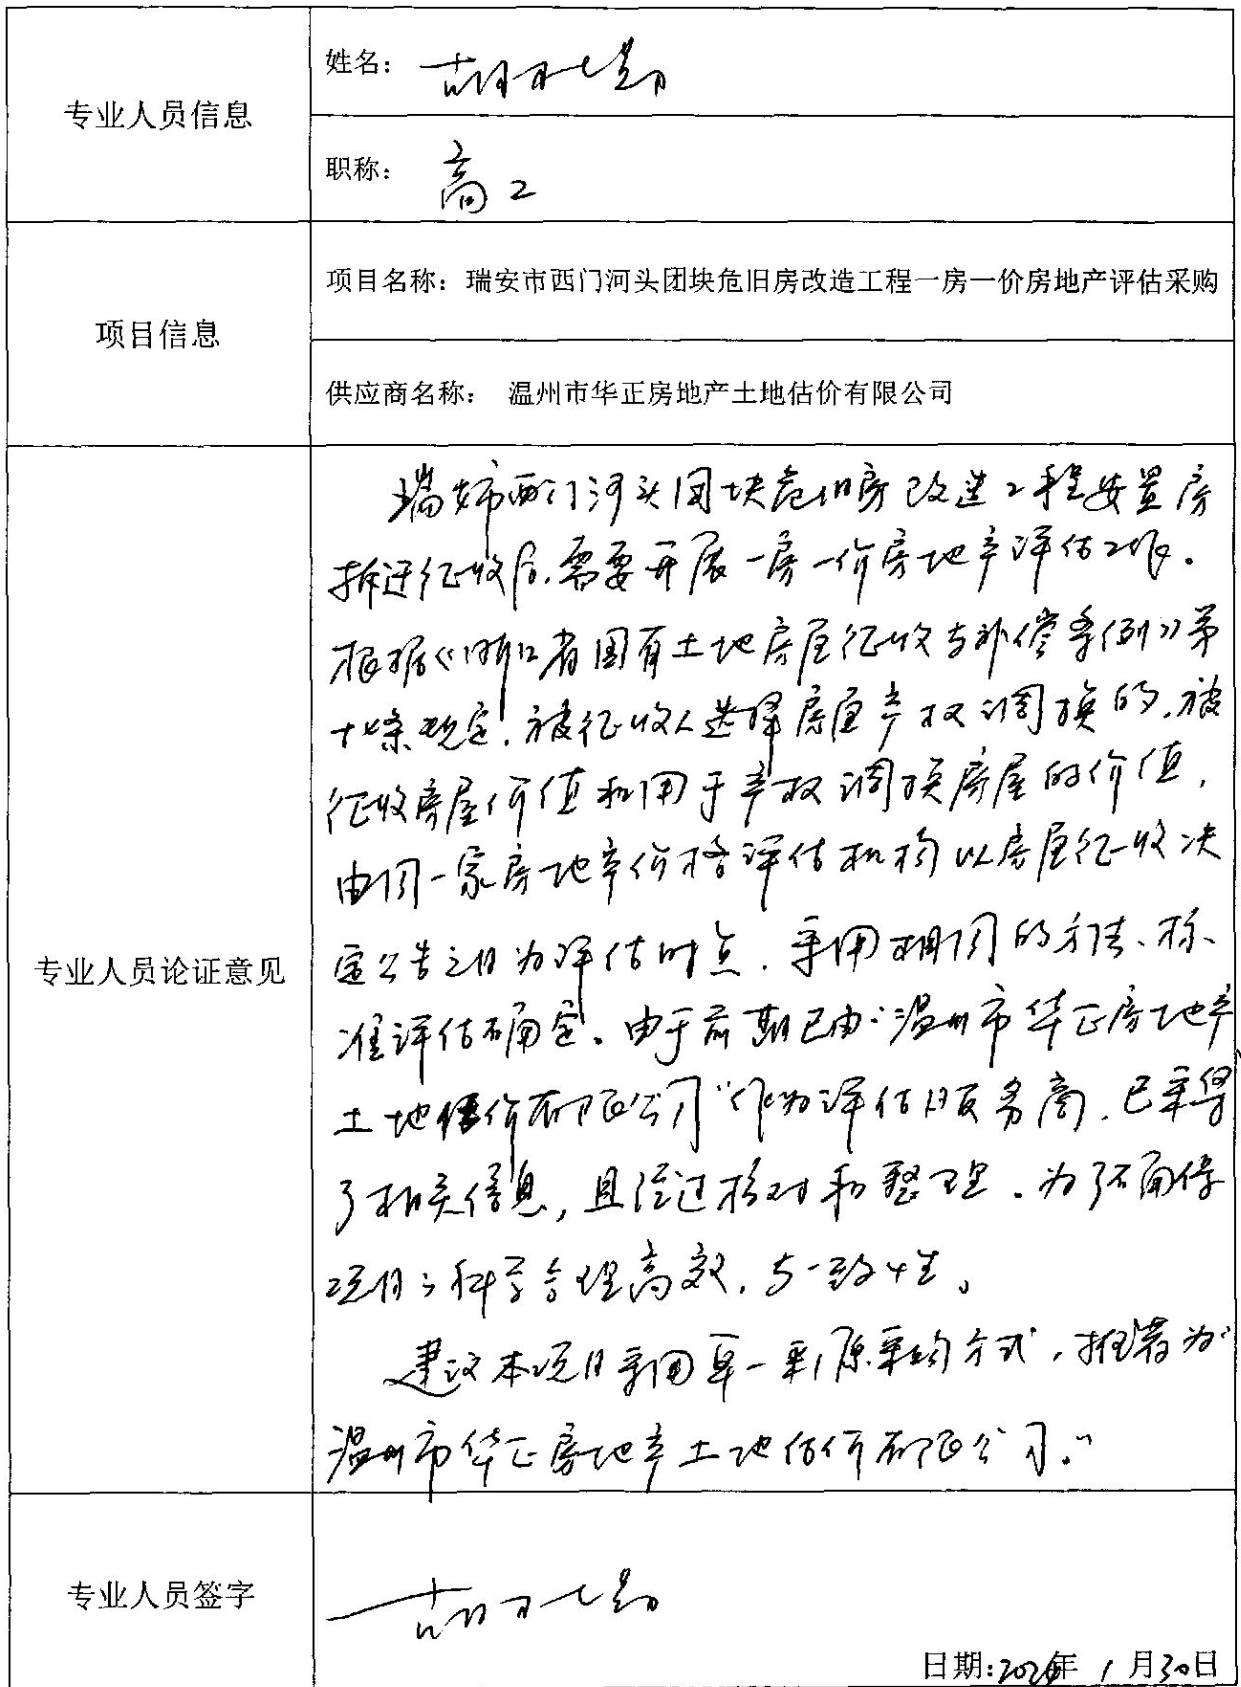 专业人员信息
姓名：胡
职称：高工
项目信息
项目名称：瑞安市西门河头团块危旧房改造工程一房一价房地产评估采购
供应商名称： 温州市华正房地产土地估价有限公司
专业人员论证意见
瑞安市西门河头团块危旧房改造工程安置房
拆迁征收后，需要开展一房一价房地产评估工作。
根据《浙江省国有土地房屋征收与补偿条例》第
条规定，被征收人选择房屋产权调换的，被
征收房屋价值和用于产权调换房屋的价值，
由同一家房地产价格评估机构以房屋征收决
定公告之日为评估时点，采用相同的方法、标
准评估确定。由于前期已由“温州市华正房地产
土地估价有限公司”作为评估服务商，已掌握
了相关信息，且经过核对和整理。为了确保
项目之科学合理高效，与一致性。
建议本项目采用单一来源采购方式，推荐为“
温州市华正房地产土地估价有限公司。”
专业人员签字
胡
日期：年 1 月30日